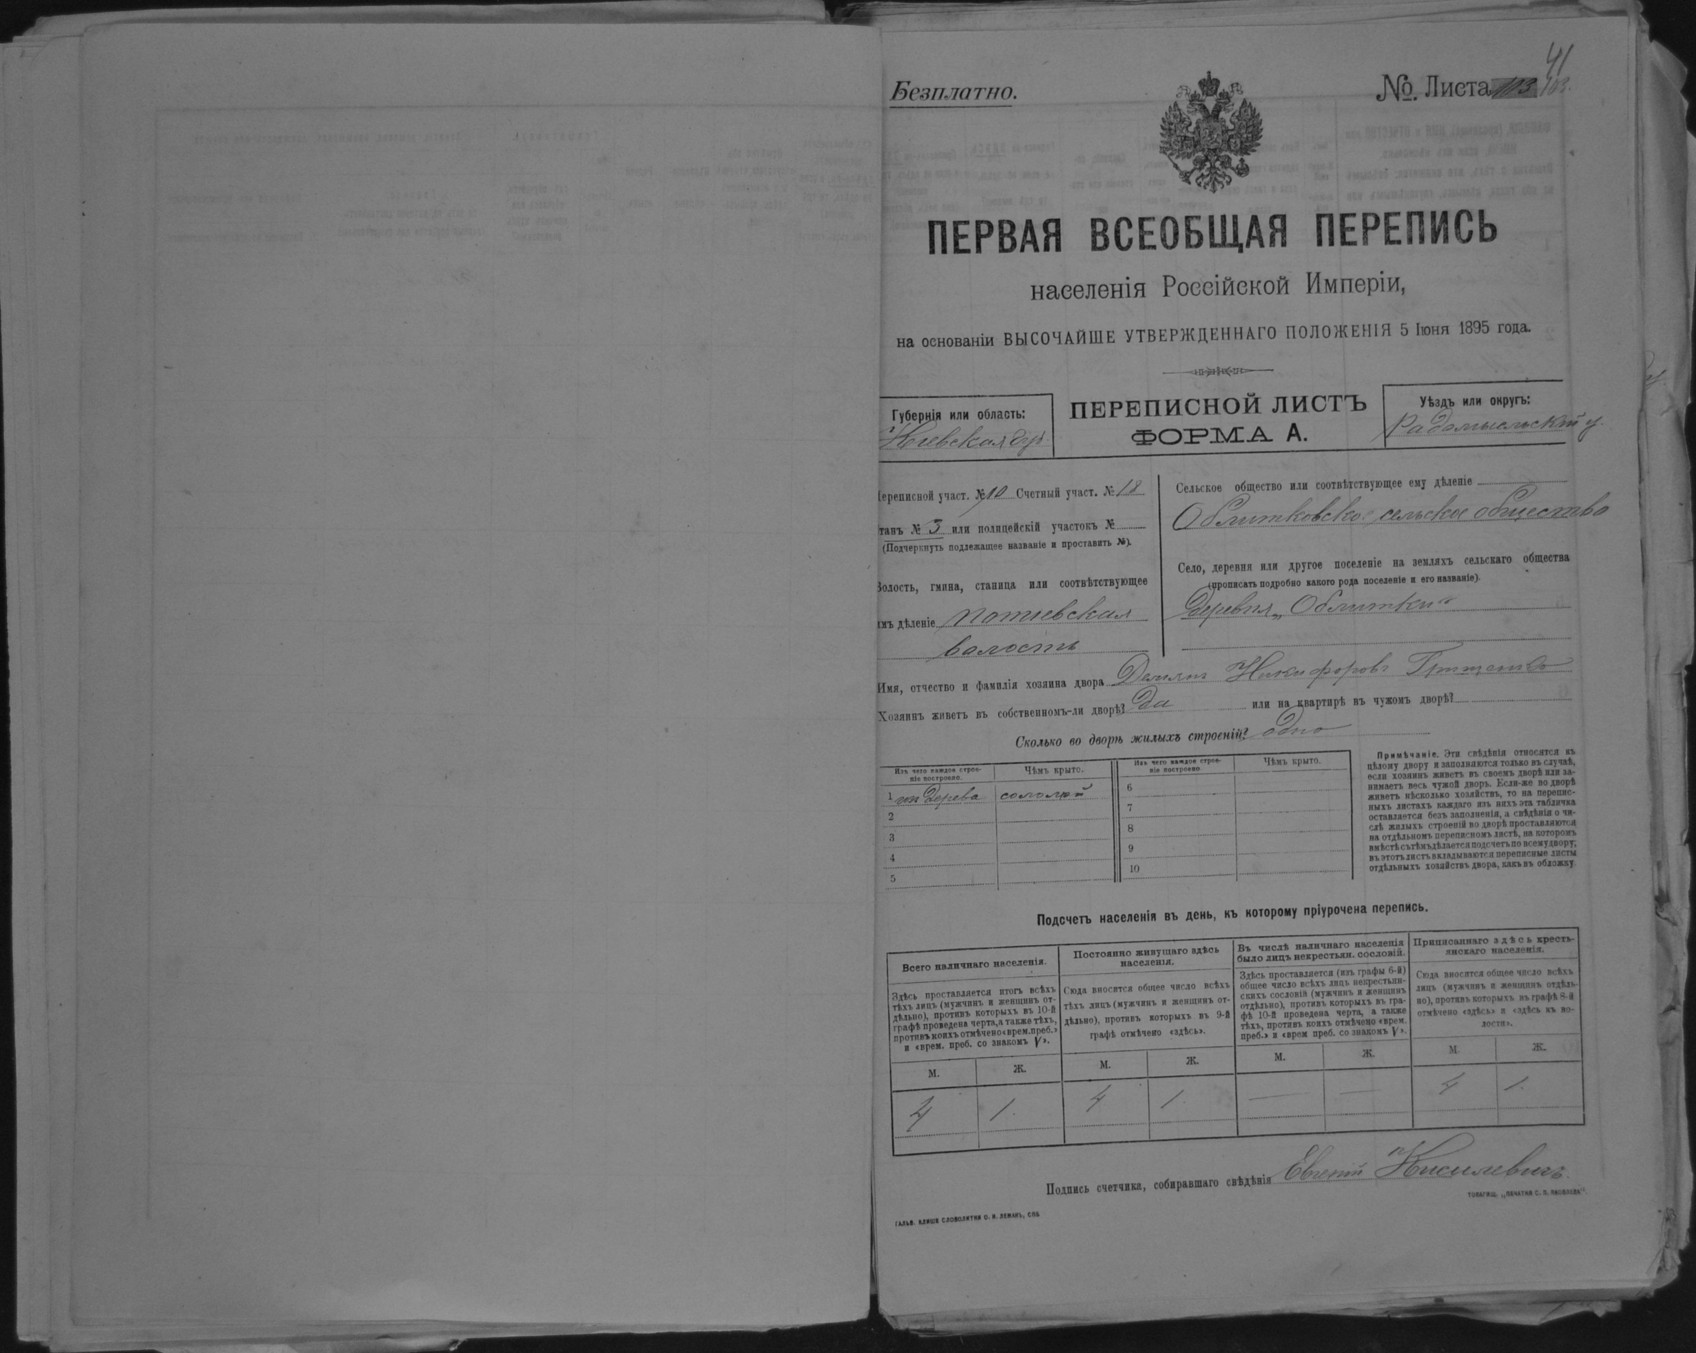 41
Безплатно.
№ Листа 103 103.
ПЕРВАЯ ВСЕОБЩАЯ ПЕРЕПИСЬ
населенія Россійской Имперіи,
на основаніи ВЫСОЧАЙШЕ УТВЕРЖДЕННАГО ПОЛОЖЕНІЯ 5 Іюня 1895 года.
Губернія или область:
Кіевская губ
ПЕРЕПИСНОЙ ЛИСТЪ
ФОРМА А.
Уѣздъ или округъ:
Радомысльскій у.
Переписной участ. № 10 Счетный участ. № 18
Станъ № 3 или полицейскій участокъ №
(Подчеркнуть подлежащее названіе и проставить №).
Волость, гмина, станица или соотвѣтствующее
имъ дѣленіе Потіевская
волость
Сельское общество или соотвѣтствующее ему дѣленіе
Облитковское сельское общество
Село, деревня или другое поселеніе на земляхъ сельскаго общества
(прописать подробно какого рода поселеніе и его названіе).
Деревня „Облитки“
Имя, отчество и фамилія хозяина двора Демьян Никифоровъ Грищенко
Хозяинъ живетъ въ собственномъ-ли дворѣ? Да или на квартирѣ въ чужомъ дворѣ?
Сколько во дворѣ жилыхъ строеній? одно
Изъ чего каждое строе-
ніе построено.
Чѣмъ крыто.
Изъ чего каждое строе-
ніе построено.
Чѣмъ крыто.
1 изъ дерева соломой
2
3
4
5
6
7
8
9
10
Примѣчаніе. Эти свѣдѣнія относятся къ
цѣлому двору и заполняются только въ случаѣ,
если хозяинъ живетъ въ своемъ дворѣ или за-
нимаетъ весь чужой дворъ. Если-же во дворѣ
живетъ нѣсколько хозяйствъ, то на перепис-
ныхъ листахъ каждаго изъ нихъ эта табличка
оставляется безъ заполненія, а свѣдѣнія о чи-
слѣ жилыхъ строеній во дворѣ проставляются
на отдѣльномъ переписномъ листѣ, на которомъ
вмѣстѣ съ тѣмъ дѣлается подсчетъ по всему двору;
въ этотъ листъ вкладываются переписные листы
отдѣльныхъ хозяйствъ двора, какъ въ обложку.
Подсчетъ населенія въ день, къ которому пріурочена перепись.
Всего наличнаго населенія.
Здѣсь проставляется итогъ всѣхъ
тѣхъ лицъ (мужчинъ и женщинъ от-
дѣльно), противъ которыхъ въ 10-й
графѣ проведена черта, а также тѣхъ,
противъ коихъ отмѣчено «врем. преб.»
и «врем. преб. со знакомъ V».
М. Ж.
4 1.
Постоянно живущаго здѣсь
населенія.
Сюда вносится общее число всѣхъ
тѣхъ лицъ (мужчинъ и женщинъ от-
дѣльно), противъ которыхъ въ 9-й
графѣ отмѣчено «здѣсь».
М. Ж.
4 1.
Въ числѣ наличнаго населенія
было лицъ некрестьян. сословій.
Здѣсь проставляется (изъ графы 6-й)
общее число всѣхъ лицъ некрестьян-
скихъ сословій (мужчинъ и женщинъ
отдѣльно), противъ которыхъ въ гра-
фѣ 10-й проведена черта, а также
тѣхъ, противъ коихъ отмѣчено «врем.
преб.» и «врем преб. со знакомъ V».
М. Ж.
— —
Приписаннаго здѣсь кресть-
янскаго населенія.
Сюда вносится общее число всѣхъ
лицъ (мужчинъ и женщинъ отдѣль-
но), противъ которыхъ въ графѣ 8-й
отмѣчено «здѣсь» и «здѣсь въ во-
лости».
М. Ж.
4 1.
Подпись счетчика, собиравшаго свѣдѣнія Евгеній Кисилевичъ.
ГАЛЬВ. КЛИШЕ СЛОВОЛИТНИ О. И. ЛЕМАНЪ, СПБ.
ТОВАРИЩ. „ПЕЧАТНЯ С. П. ЯКОВЛЕВА“.